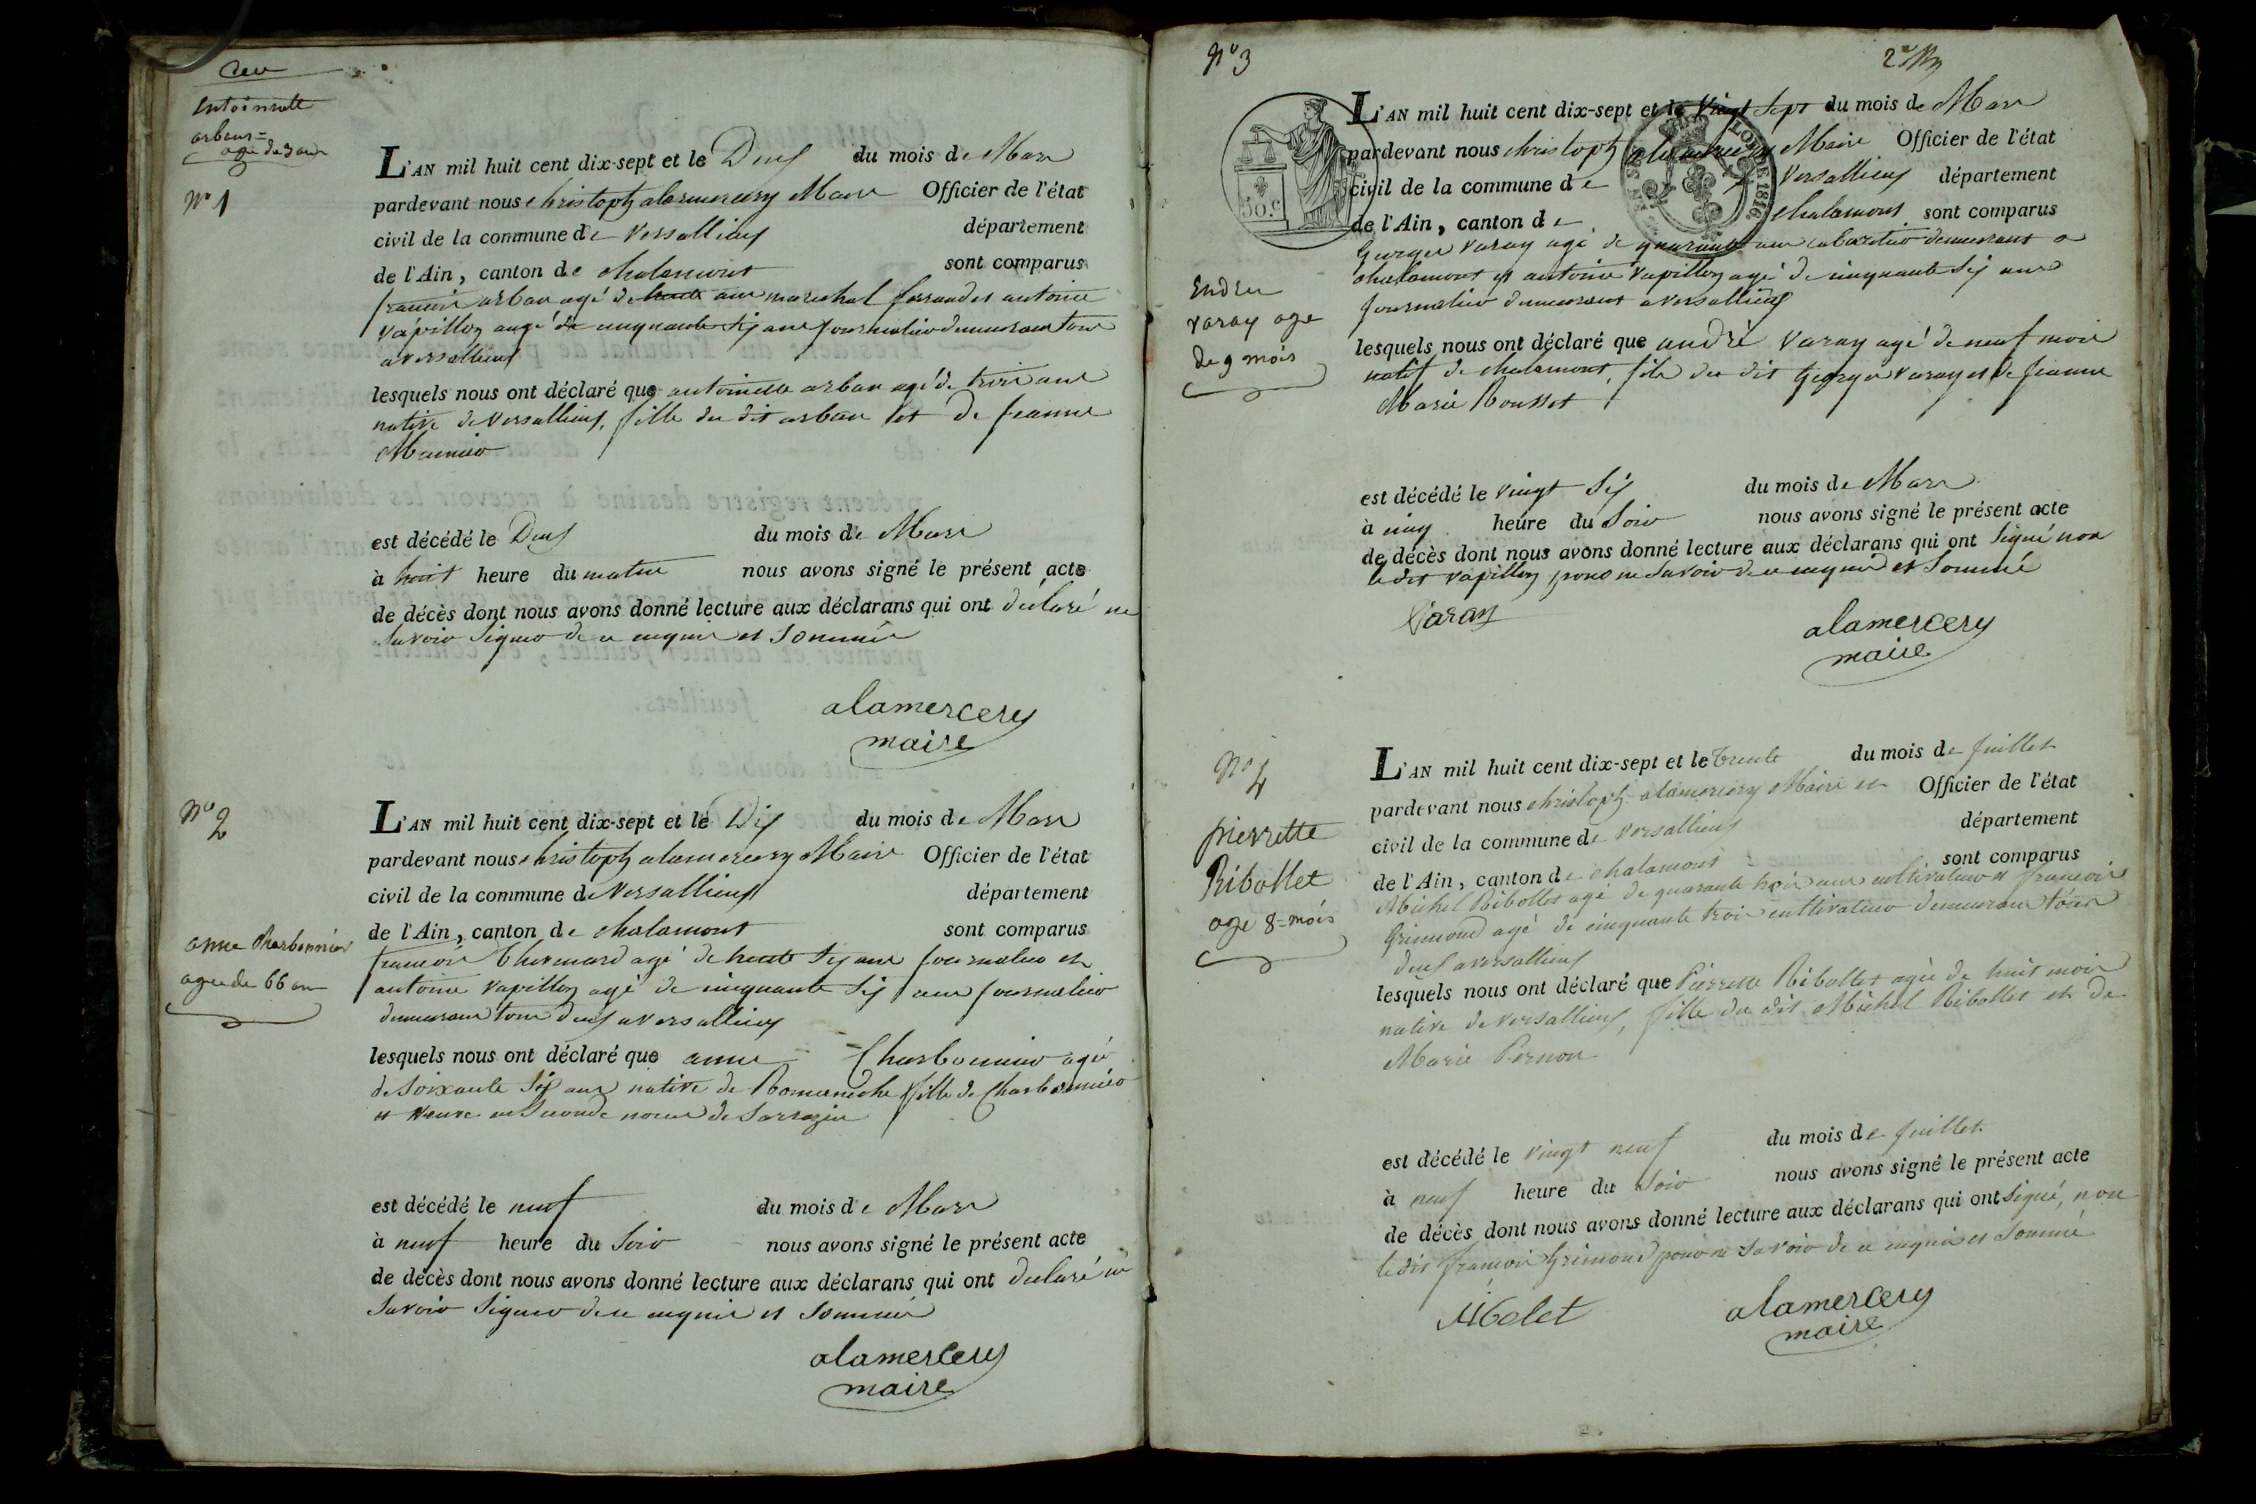 Antoinette
arban
agé de 3 ans
N° 1
L'AN mil huit cent dix-sept et le Deux du mois de Mars
pardevant nous christoph alamercery Maire Officier de l'état
civil de la commune de Versallieux département
de l'Ain, canton de chalamont sont comparus
francois arban agé de trente ans marechal ferrand et antoine
vapillon augé de cinquante six ans journalier demeurant tous
a versallieux
lesquels nous ont déclaré que antoinette arban agé de trois ans
native de versallieux, fille du dit arban et de jeanne
Meunier
est décédé le Deux du mois de Mars
à huit heure du matin nous avons signé le présent acte
de décès dont nous avons donné lecture aux déclarans qui ont declaré ne
savoir signer de ce enquis et sommés
alamercery
maire
N° 2
anne charbonnier
agee de 66 ans
L'AN mil huit cent dix-sept et le Dix du mois de Mars
pardevant nous christoph alamercery Maire Officier de l'état
civil de la commune de Versallieux département
de l'Ain, canton de chalamont sont comparus
francois Thevenard agé de trente six ans journalier et
antoine vapillon agé de cinquante six ans journalier
demeurant tous deux a versallieux
lesquels nous ont déclaré que anne Charbonnier agée
de soixante six ans native de Romaneche fille de Charbonnier
et veuve en seconde noces de Sarrazin
est décédé le neuf du mois de Mars
à neuf heure du soir nous avons signé le présent acte
de décès dont nous avons donné lecture aux déclarans qui ont declaré ne
savoir signer de ce enquis et sommés
alamercery
maire
N° 3
L'AN mil huit cent dix-sept et le Vingt Sept du mois de Mars
pardevant nous christoph alamercery Maire Officier de l'état
civil de la commune de Versallieux département
de l'Ain, canton de chalamont sont comparus
50 c
1816
Georges varay agé de quarante ans cabartier demeurant a
chalamont et antoine vapillon agé de cinquante six ans
journalier demeurant a versallieux
Endreu
varay age
de 9 mois
lesquels nous ont déclaré que andré varay agé de neuf mois
natif de chalamont, fils du dit Georges varay et de jeanne
Marie Rousset
est décédé le vingt six du mois de Mars
à cinq heure du soir nous avons signé le présent acte
de décès dont nous avons donné lecture aux déclarans qui ont signé non
le dit vapillon pour ne savoir de ce enquis et sommé
Varay
alamercery
maire
N° 4
pierrette
Ribollet
age 8 mois
L'AN mil huit cent dix-sept et le trente du mois de juillet
pardevant nous christoph alamercery Maire et Officier de l'état
civil de la commune de versallieux département
de l'Ain, canton de chalamont sont comparus
Michel Ribollet agé de quarante trois ans cultivateur et francois
Grimond agé de cinquante trois cultivateur demeurant tous
deux a versallieux
lesquels nous ont déclaré que Pierrette Ribollet agée de huit mois
native de versallieux, fille du dit Michel Ribollet et de
Marie Pernon
est décédé le vingt neuf du mois de juillet
à neuf heure du soir nous avons signé le présent acte
de décès dont nous avons donné lecture aux déclarans qui ont signé, non
le dit francois Grimond pour ne savoir de ce enquis et sommé
alamercery
maire